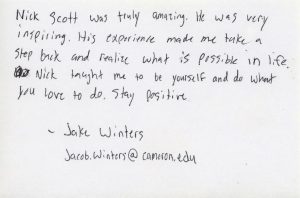 Nick Scott was truly amazing. He was very
inspiring. His experience made me take a
step back and realize what is possible in life.
Nick taught me to be yourself and do what
you love to do. Stay positive.
~ Jake Winters
Jacob.Winters@cameron.edu